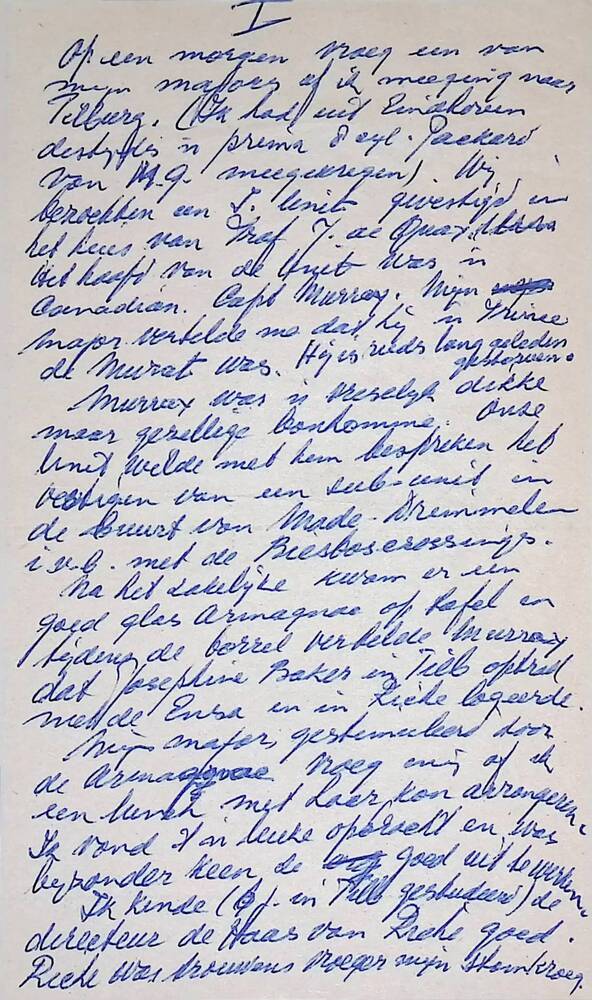 I
Op een morgen vroeg een van
mijn majors of ik meeging naar
Tilburg. (Ik had uit Eindhoven
destijds 'n prima 8 cyl. Packard
van M.G. meegekregen). Wij
bezochten een I. Unit gevestigd in
het huis van Prof J. de Quay.
Het hoofd van de Unit was 'n
Canadian. Capt Murray. Mijn
major vertelde me dat hij 'n Prince
de Murat was. Hij is reeds lang geleden
gestorven.
Murray was 'n vreselijk dikke
maar gezellige bonhomme. Onze
Unit wilde met hem bespreken het
vestigen van een sub-unit in
de buurt van Made-Drimmelen
i.v.b. met de Biesboscrossings.
Na het zakelijke kwam er een
goed glas Armagnac op tafel en
tijdens de borrel vertelde Murray
dat Josephine Baker in Tilb optrad
met de Ensa en in Riche logeerde.
Mijn major, gestimuleerd door
de Armagnac vroeg mij of ik
een lunch met haar kon arrangeren.
Ik vond 't 'n leuke opdracht en was
bijzonder keen, de goed uit te werken.
Ik kende (of. in Tilb gestudeerd) de
directeur de Haas van Riche goed.
Riche was trouwens vroeger mijn stamkroeg.